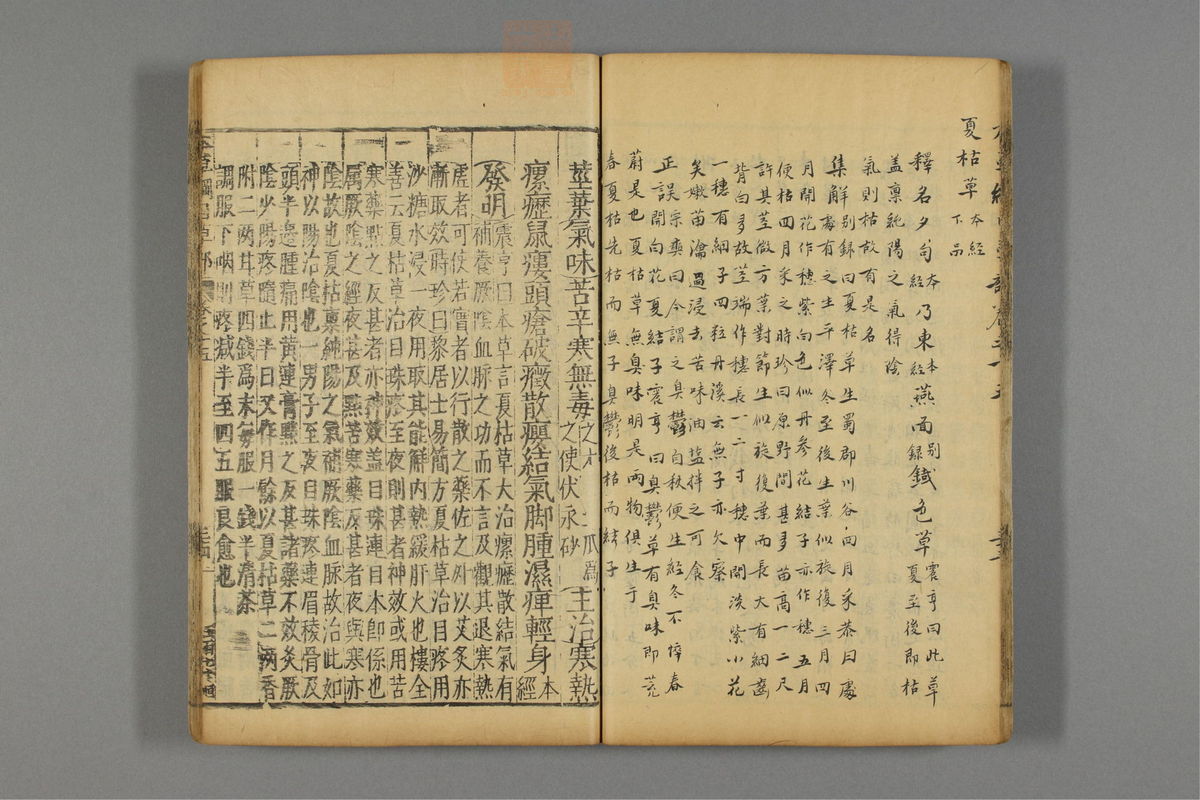 夏枯草 本經下品
釋名夕句本經乃東本經燕面別錄鐵色草震亨曰此草夏至後即枯
盖稟純陽之氣得陰
氣則枯故有是名
集解別錄曰夏枯草生蜀郡川谷四月采恭曰處
處有之生平澤冬至後生葉似旋復三月四
月開花作穗紫白色似丹參花結子亦作穗五月
便枯四月采之時珍曰原野間甚多苗高一二尺
許其莖微方葉對節生似旋復葉而長大有細齒
背白多故莖端作穗長一二寸穗中開淡紫小花
一穗有細子四粒丹溪云無子亦欠察
矣嫩苗瀹過浸去苦味油盐拌之可食
正誤宗奭曰今謂之臭鬱自秋便生經冬不悴春
開白花夏結子震亨曰臭鬱草有臭味即茺
蔚是也夏枯草無臭味明是兩物俱生于
春夏枯先枯而無子臭鬱後枯而結子
莖葉氣味苦辛寒無毒之才曰土瓜為之使伏汞砂主治寒熱
瘰癧鼠瘻頭瘡破癥散癭結氣脚腫濕痺輕身本經
發明震亨曰本草言夏枯草大治瘰癧散結氣有
補養厥陰血脈之功而不言及觀其退寒熱
虛者可使若實者以行散之藥佐之外以艾灸亦
漸取效時珍曰黎居士易簡方夏枯草治目疼用
沙糖水浸一夜用取其能解內熱緩肝火也樓全
善云夏枯草治目珠疼至夜則甚者神效或用苦
寒藥點之反甚者亦神效盖目珠連目本即係也
屬厥陰之經夜甚及點苦寒藥反甚者夜與寒亦
陰故也夏枯稟純陽之氣補厥陰血脈故治此如
神以陽治陰也一男子至夜目珠疼連眉稜骨及
頭半邊腫痛用黃連膏點之反甚諸藥不效灸厥
陰少陽疼隨止半日又作月餘以夏枯草二兩香
附二兩甘草四錢為末每服一錢半清茶
調服下咽則疼減半至四五服良愈也